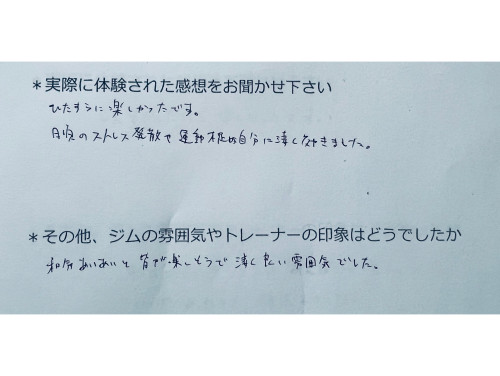 ＊実際に体験された感想をお聞かせ下さい
ひたすらに楽しかったです。
日頃のストレス発散や運動不足の自分に凄く効きました。
＊その他、ジムの雰囲気やトレーナーの印象はどうでしたか
和気あいあいと皆が楽しそうで凄く良い雰囲気でした。